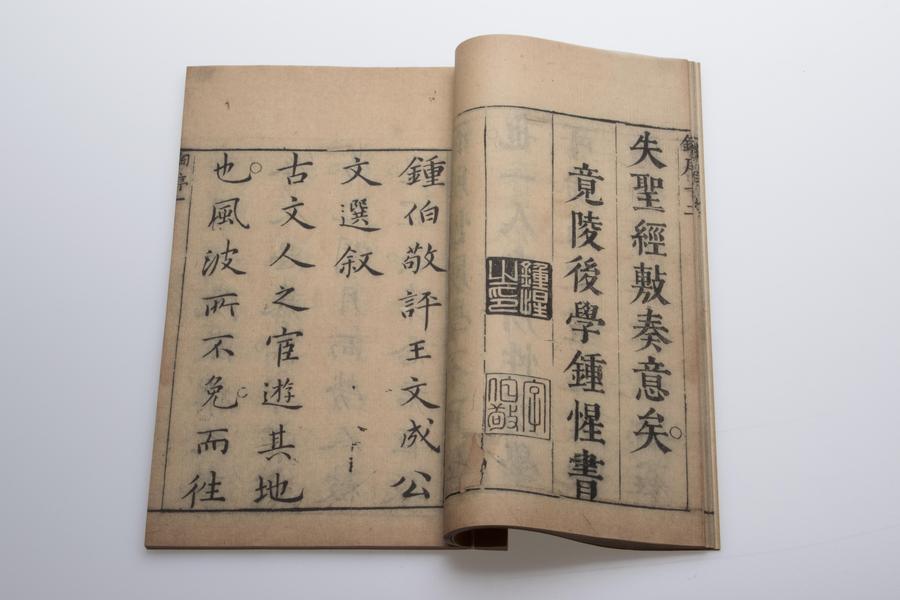 失聖經敷奏意矣
竟陵後學鍾惺書
鍾惺之印
字伯敬
鍾伯敬評王文成公
文選叙
古文人之宦遊其地
也風波所不免而徃